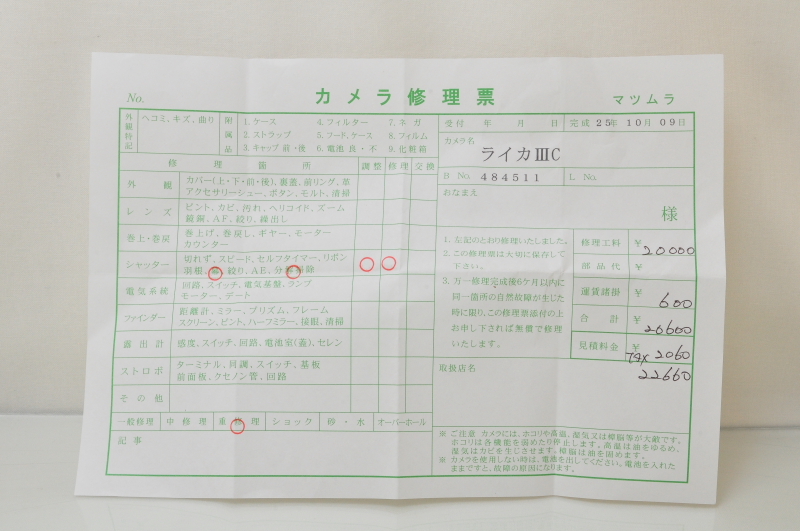 No.
カメラ修理票
マツムラ
外観特記
ヘコミ、キズ、曲り
附属品
1. ケース 4. フィルター 7. ネガ
2. ストラップ 5. フード、ケース 8. フィルム
3. キャップ前・後 6. 電池良・不 9. 化粧箱
受付 年 月 日
完成 25年 10月 09日
カメラ名
ライカⅢC
B No. 484511
L No.
おなまえ
様
修理箇所 調整 修理 交換
外観 カバー(上・下・前・後)、裏蓋、前リング、革
アクセサリーシュー、ボタン、モルト、清掃
レンズ ピント、カビ、汚れ、ヘリコイド、ズーム
鏡胴、AF、絞り、繰出し
巻上・巻戻 巻上げ、巻戻し、ギヤー、モーター
カウンター
シャッター 切れず、スピード、セルフタイマー、リボン
羽根、幕、絞り、AE、分解掃除
電気系統 回路、スイッチ、電気基盤、ランプ
モーター、デート
ファインダー 距離計、ミラー、プリズム、フレーム
スクリーン、ピント、ハーフミラー、接眼、清掃
露出計 感度、スイッチ、回路、電池室(蓋)、セレン
ストロボ ターミナル、同調、スイッチ、基板
前面板、クセノン管、回路
その他
一般修理 中修理 重修理 ショック 砂・水 オーバーホール
記事
1. 左記のとおり修理いたしました。
2. この修理票は大切に保存して
下さい。
3. 万一修理完成後6ケ月以内に
同一箇所の自然故障が生じた
時に限り、この修理票添付の上
お申し下されば無償で修理
いたします。
修理工料 ¥ 20000
部品代 ¥
運賃諸掛 ¥ 600
合計 ¥ 20600
見積料金 ¥
TAX 2060
22660
取扱店名
※ ご注意 カメラには、ホコリや高温、湿気又は樟脳等が大敵です。
ホコリは各機能を固めたり停止します。高温は油をゆるめ、
湿気はカビを生じさせます。樟脳は油を固めます。
※ カメラを使用しない時は、電池を出してください。電池を入れた
ままですと、故障の原因になります。